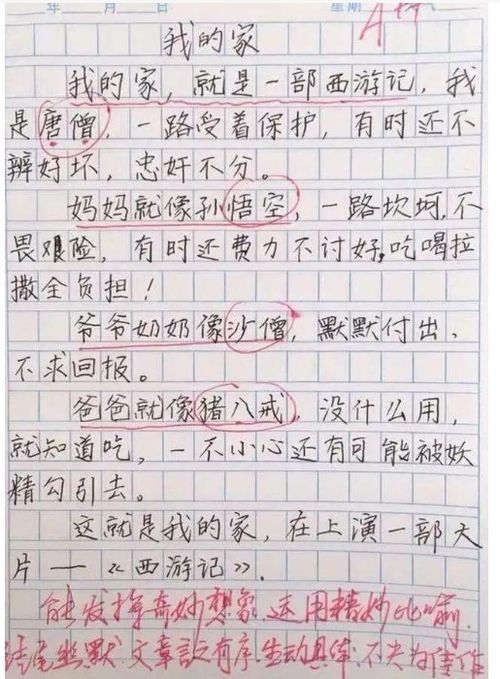 年 月 日 星期 气
A++
我的家
我的家，就是一部西游记，我
是唐僧，一路受着保护，有时还不
辨好坏，忠奸不分。
妈妈就像孙悟空，一路坎坷，不
畏艰险，有时还费力不讨好，吃喝拉
撒全负担！
爷爷奶奶像沙僧，默默付出，
不求回报。
爸爸就像猪八戒，没什么用，
就知道吃，一不小心还有可能被妖
精勾引去。
这就是我的家，在上演一部大
片——《西游记》.
能发挥奇妙想象,运用精妙比喻,
结尾幽默.文章设有序.生动具体.不失为佳作